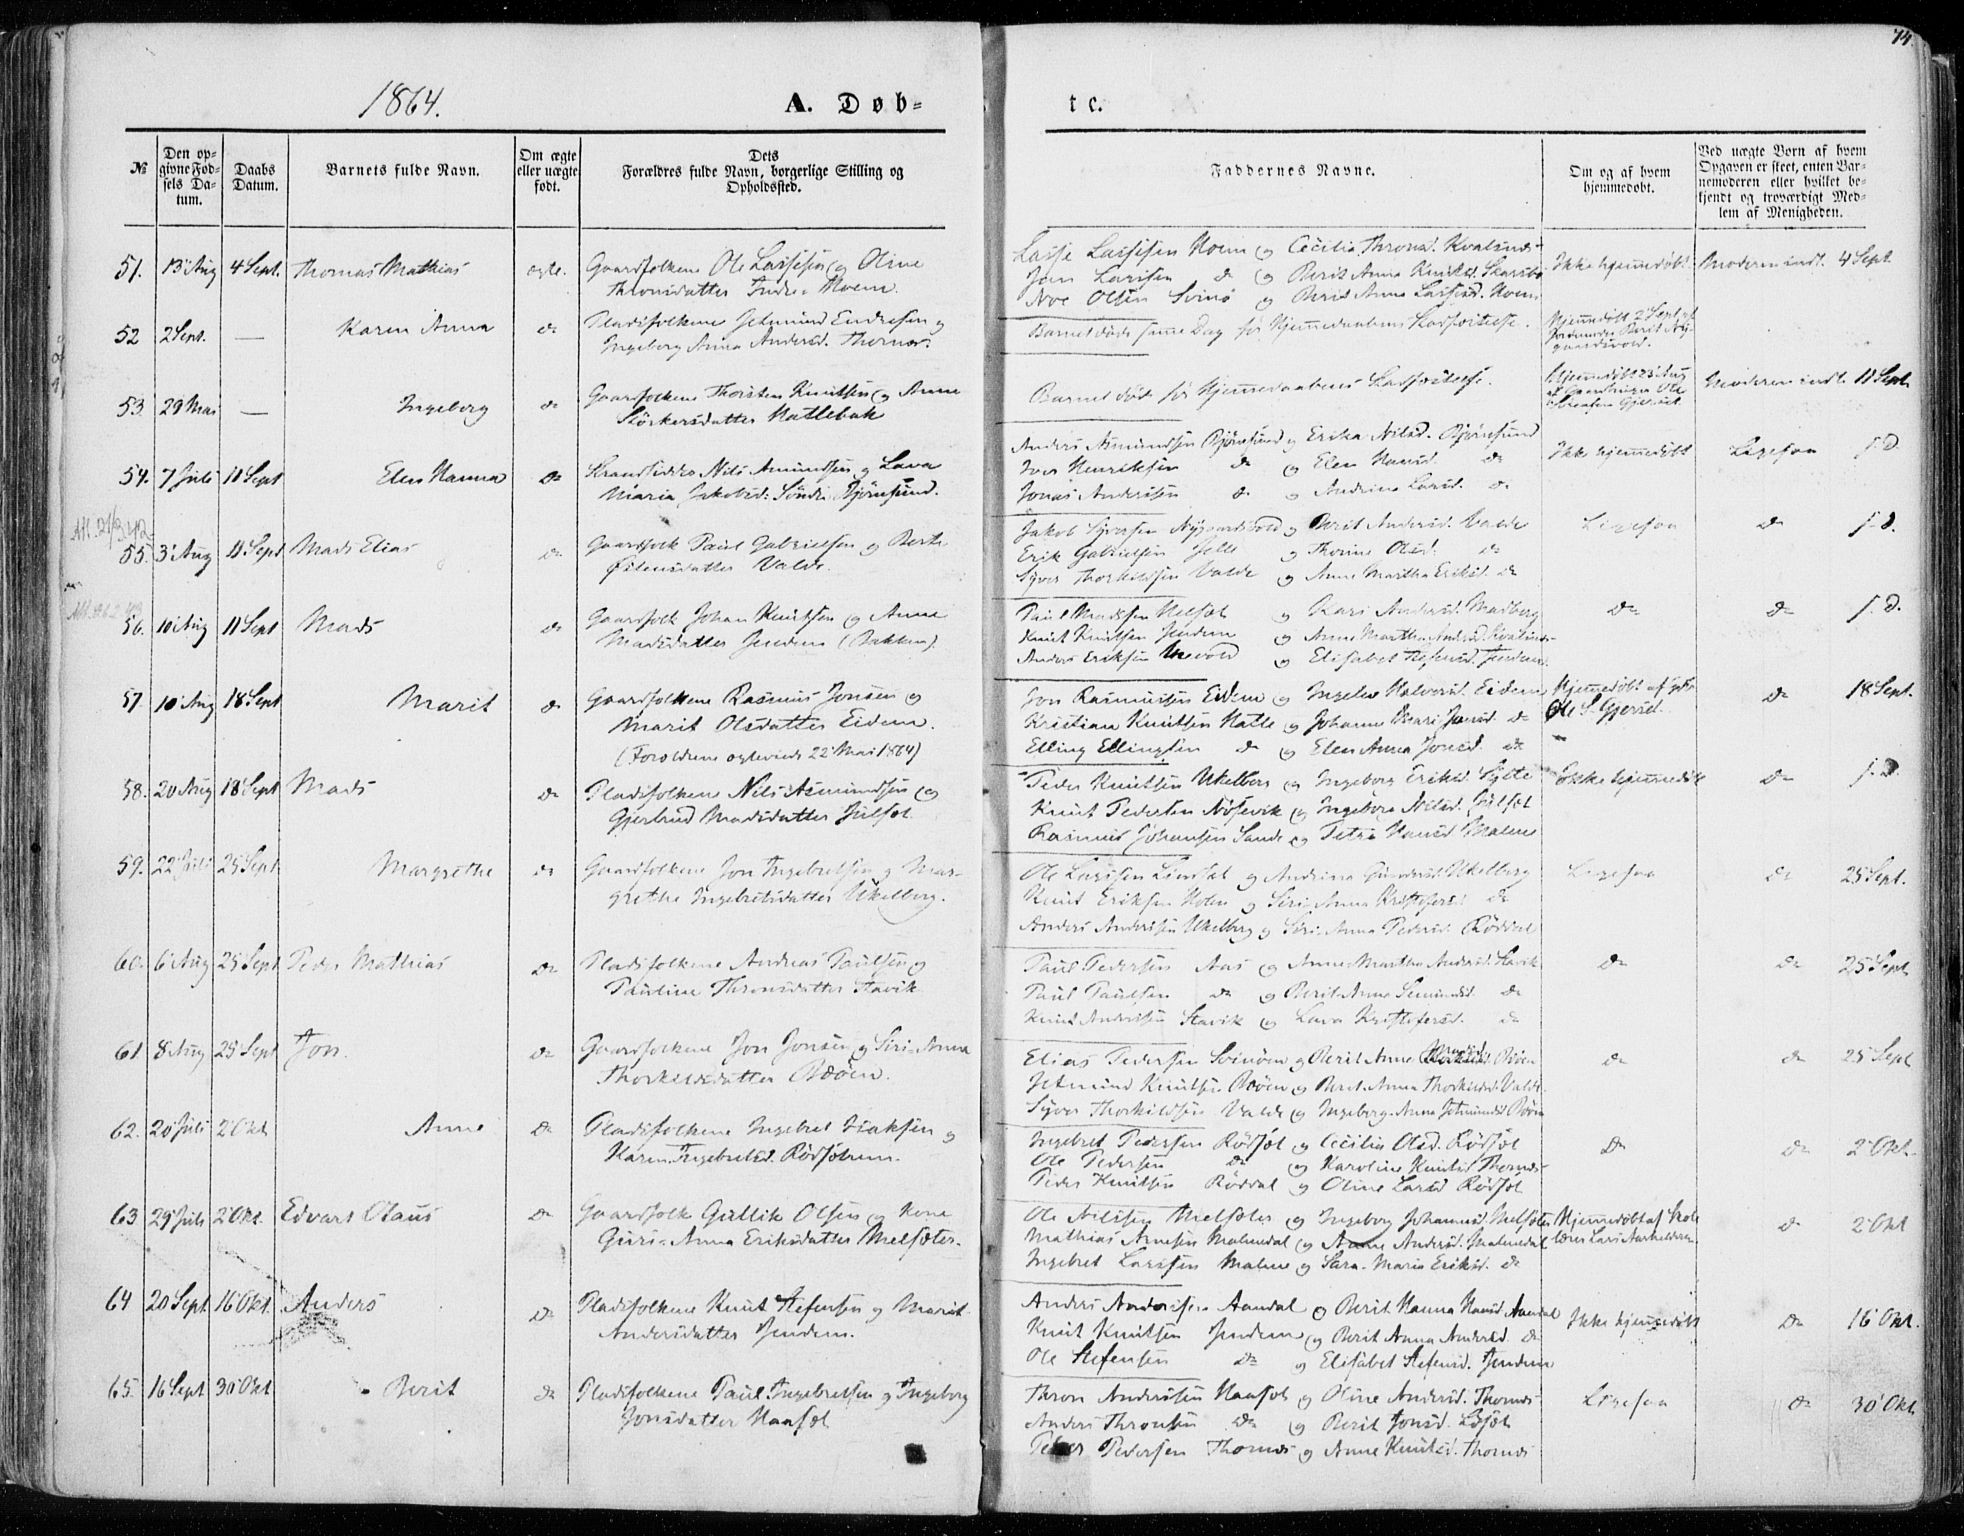 74.
1864.
A. Døb-
te.
№
Den opgivne Fødsels Datum.
Daabs Datum.
Barnets fulde Navn.
Om ægte eller uægte født.
Dets Forældres fulde Navn, borgerlige Stilling og Opholdssted.
Faddernes Navne.
Om og af hvem hjemmedøbt.
Ved uægte Børn af hvem Opgaven er skeet, enten Barnemoderen eller hvilket bekjendt og troværdigt Medlem af Menigheden.
51. 13 Aug 4 Sept. Thomas Mathias ægte. Gaardfolkene Ole Lassesen og Oline
Thronsdatter Indre Moem.
Lasse Lassesen Moem og Cecilia Thronsd. Kvalsnes
Jon Larssen do og Berit Anna Knutsd. Skarsbø
Noe Olsen Svinø og Berit Anna Lassesd. Moem
Ikke hjemmedøbt Moderen indl. 4 Sept.
52 2 Sept. — Karen Anna do Pladsfolkene Jetmund Endresen og
Ingeborg Anna Andersd. Thornes.
Barnet døde samme Dag før Hjemmedaabens Stadfæstelse.
Hjemmedøbt 2 Sept af
Jordmoder Berit Nygaardsvold.
53. 29 Mai — Ingeborg do Gaardfolkene Thorsten Knutsen og Anne
Størkersdatter Hatlebak
Barnet døde før Hjemmedaabens Stadfæstelse.
Moderen indl. 11 Sept
54. 7 Juli 11 Sept Elen Hanna do Strandsidder Nils Amundsen og Lava
Maria Jakobsd. Søndre Bjørnsund.
Anders Asmundsen Bjørnsund og Erika Nilsd. Bjørnsund
Iver Henriksen do og Elen Hansd. do
Jonas Andersen do og Andrine Larsd. do
Ikke hjemmedøbt Ligesaa s. D.
55. 3 Aug 11 Sept Mads Elias do Gaardfolk Paul Gabrielsen og Berte
Østensdatter Valde.
Jakob Syversen Nygaardsvold og Berit Andersd. Valde
Erik Gabrielsen Julle og Thorine Olsd. do
Syver Thorkildsen Valde og Anne Martha Eriksd. do
Ligesaa do s. D.
56. 10 Aug 11 Sept Mads do Gaardfolk Johan Knutsen og Anne
Madsdatter Jendem (Bakken).
Paul Madsen Julsæt og Kari Andersd. Malberg
Knut Knutsen Jendem og Anne Martha Andersd. Kvalsnes
Anders Eriksen og Elisabet Stefensd. Jendem
do do s. D.
57. 10 Aug 18 Sept Marit do Gaardfolkene Rasmus Jonsen og
Marit Olsdatter Eidem.
(Forældrene ægteviede 22 Mai 1864)
Jon Rasmussen Eidem og Ingelev Halvorsd. Eidem
Kristian Knutsen Hatle og Johanne Mari Jonsd. do
Elling Ellingsen do og Elen Anna Jonsd. do
Hjemmedøbt af
Ole S. Gjersæt. do 18 Sept.
58. 20 Aug 18 Sept Mads do Pladsfolkene Nils Asmundsen og
Gjertrud Madsdatter Julsæt
Peder Knutsen Ukelberg og Ingeborg Eriksd. Sylte
Knut Pedersen Nøsevik og Ingeborg Nilsd. Julsæt
Rasmus Johansen Sande og Petra Hansd. Malme
Ikke hjemmedøbt do s. D.
59. 22 Juli 25 Sept Margrethe do Gaardfolkene Jon Ingebretsen og Margrethe
Ingebretsdatter Ukelberg.
Ole Larssen Lindset og Andrina Gunnersd. Ukelberg
Knut Eriksen Holen og Siri Anna Kristofersd. do
Anders Andersen Ukelberg og Siri Anna Pedersd. Røddal
Ligesaa do 25 Sept.
60. 6 Aug 25 Sept Peder Mathias do Pladsfolkene Andreas Paulsen og
Pauline Thronsdatter Stavik
Paul Pedersen Aas og Anne Martha Andersd. Stavik
Paul Paulsen do og Berit Anne do
Knut Andersen Stavik og Lava Kristofersd. do
do do 25 Sept
61 8 Aug 25 Sept Jon. do Gaardfolkene Jon Jonsen og Siri Anna
Thorkildsdatter Bøøen.
Elias Pedersen Svinøen og Berit Anne Bøen
Jetmund Knutsen Bøøen og Berit Anna Thorkildsd. Valde
Syver Thorkildsen Valde og Ingeborg Anna Jetmundsd. Bøen
do do 25 Sept
62. 20 Juli 2 Okt Anne do Pladsfolkene Ingebret Isaksen og
Karen Ingebretsd. Rødsætrem.
Ingebret Pedersen Rødsæt og Cecilia Olsd. Rødsæt
Ole Pedersen do og Karoline Knutsd. Thornes
Peder Knutsen Røddal og Oline Larsd Rødsæt
do do 2 Okt.
63 29 Juli 2 Okt. Edvart Olaus do Gaardfolk Gullik Olsen og Kone
Guri Anna Eriksdatter Melsæter.
Ole Nilssen Melsæter og Ingeborg Johannesd. Melsæter
Mathias Arnesen Malmedal og Anne Andersd. Malmedal
Ingebret Larssen Malme og Sara Maria Eriksd. do
Hjemmedøbt af Skolelærer Lars
do 2 Okt
64 20 Sept 16 Okt. Anders do Pladsfolkene Knut Stefensen og Marit
Andersdatter Jendem.
Anders Andersen Aandal og Berit Hanna Hansd. Aandal
Knut Knutsen Jendem og Berit Anna Andersd. do
Ole Stefensen do og Elisabet Stefensd. Jendem
Ikke hjemmedøbt do 16 Okt.
65. 16 Sept 30 Okt Berit do Pladsfolkene Paul Ingebretsen og Ingeborg
Jonsdatter Haasæt
Thron Andersen Haasæt og Oline Andersd. Thornes
Anders Thronsen do og Berit Jonsd.
Peder Pedersen Thornes og Anne Knutsd. Thornes
Ligesaa do 30 Okt